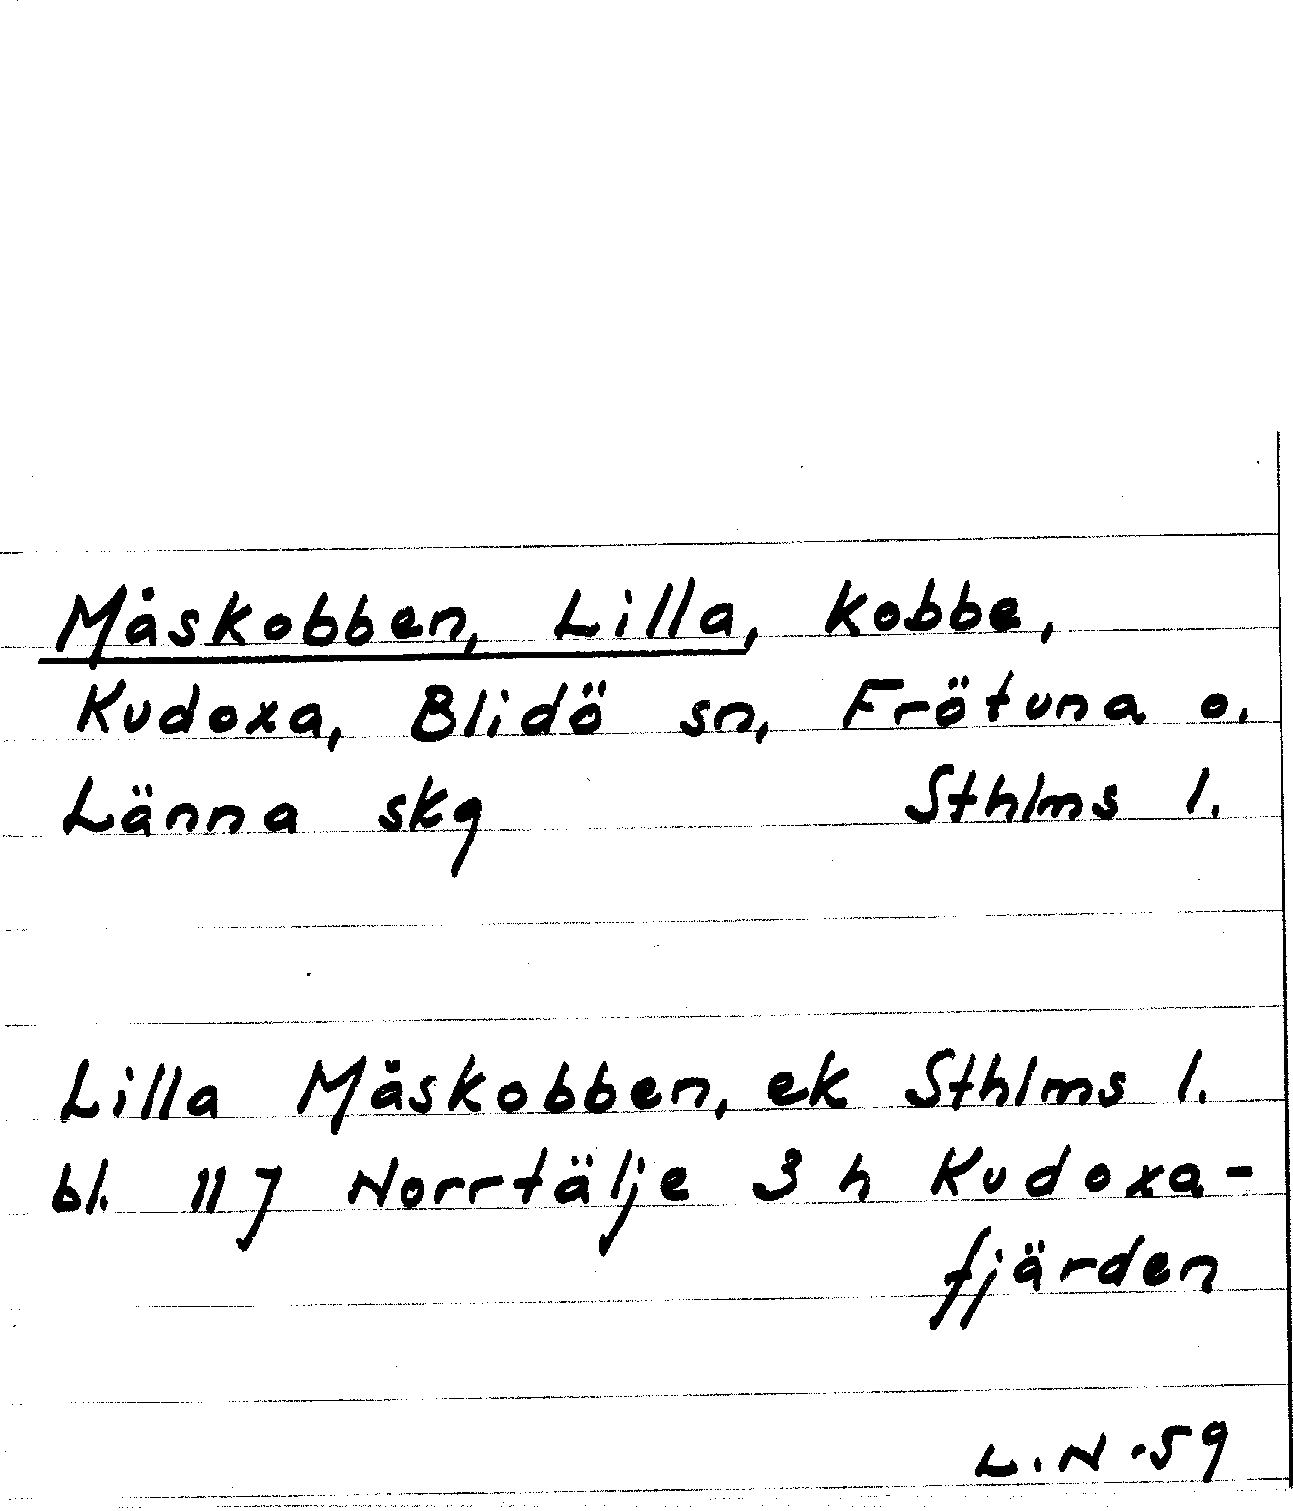 Måskobben, Lilla, kobbe,
Kudoxa, Blidö sn, Frötuna o.
Länna skg Sthlms l.
Lilla Måskobben, ek Sthlms l.
bl. 117 Norrtälje 3 h Kudoxa-
fjärden
L.N -59